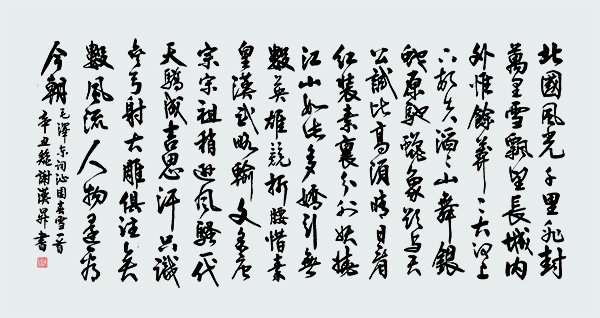 北國風光千里冰封
萬里雪飄望長城内
外惟餘莽〻大河上
下頓失滔〻山舞銀
蛇原馳蠟象欲與天
公試比高須晴日看
紅裝素裹分外妖嬈
江山如此多嬌引無
數英雄競折腰惜秦
皇漢武略輸文采唐
宗宋祖稍遜風騷一代
天驕成吉思汗只識
彎弓射大雕俱往矣
數風流人物還看
今朝
毛澤東詞沁園春雪一首
辛丑謝漢昇書